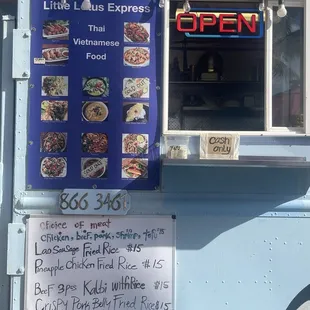 Little Lotus Express
Thai
Vietnamese
Food
OPEN
Cash
only
866 346
choice of meat
chicken, beef, pork, shrimp, tofu $15
Lao Sausage Fried Rice $15
Pineapple Chicken Fried Rice $15
Beef 3 pcs Kalbi with Rice $15
Crispy Pork Belly Fried Rice $15